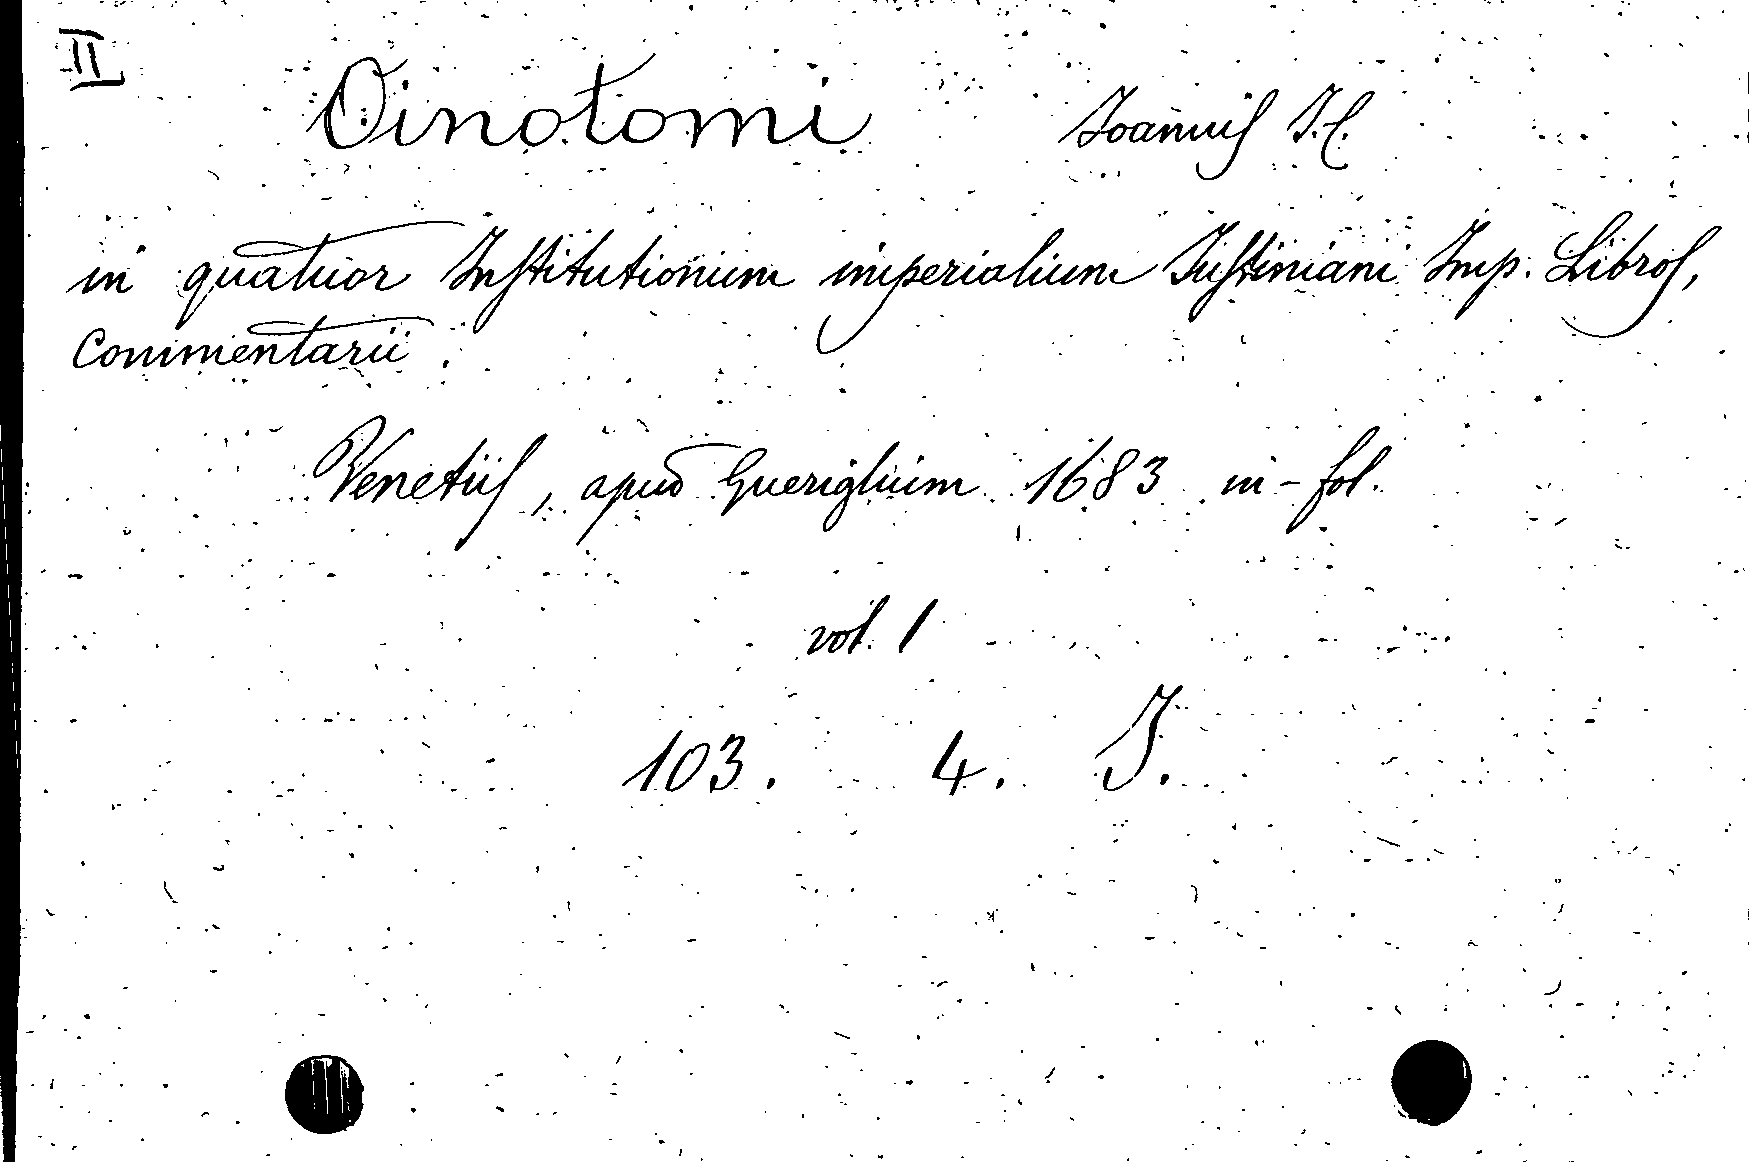 II
Oinotomi Joannis J.C.
in quatuor Institutionum imperialium Justiniani Imp. Libros,
Commentarii.
Venetiis, apud Gueriglium 1683 in-fol.
vol. 1
103. 4. J.